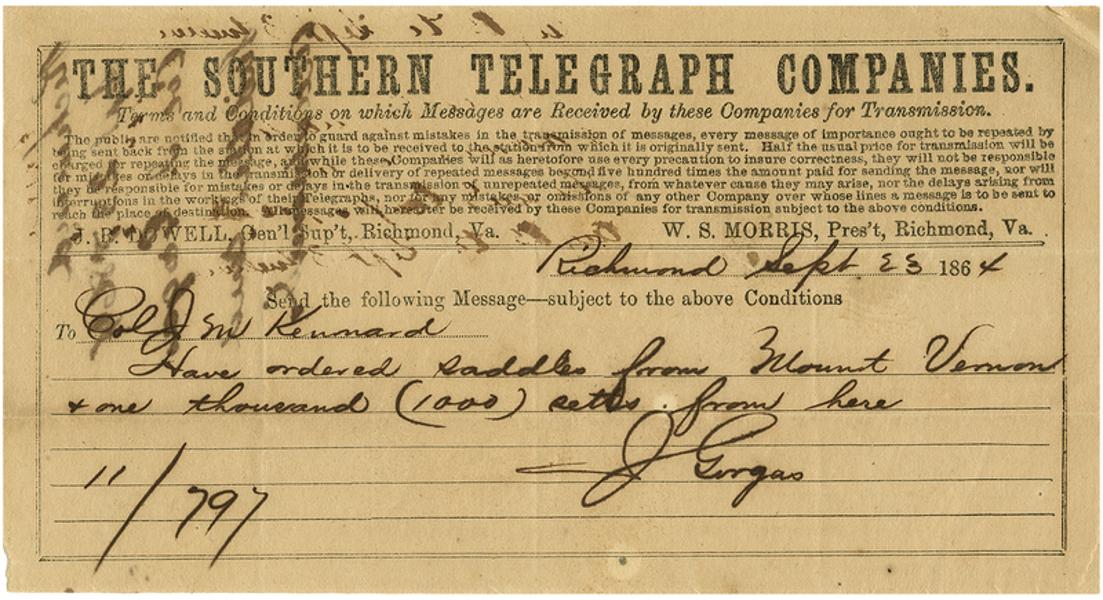 THE SOUTHERN TELEGRAPH COMPANIES.
Terms and Conditions on which Messages are Received by these Companies for Transmission.
The public are notified that in order to guard against mistakes in the transmission of messages, every message of importance ought to be repeated by
being sent back from the station at which it is to be received to the station from which it is originally sent. Half the usual price for transmission will be
charged for repeating the message, and while these Companies will as heretofore use every precaution to insure correctness, they will not be responsible
for mistakes or delays in the transmission or delivery of repeated messages beyond five hundred times the amount paid for sending the message, nor will
they be responsible for mistakes or delays in the transmission of unrepeated messages, from whatever cause they may arise, nor the delays arising from
interruptions in the workings of their Telegraphs, nor for any mistakes or omissions of any other Company over whose lines a message is to be sent to
reach the place of destination. All messages will hereafter be received by these Companies for transmission subject to the above conditions.
J. R. DOWELL, Gen'l Sup't, Richmond, Va. W. S. MORRIS, Pres't, Richmond, Va.
Richmond Sept 23 1864
Send the following Message—subject to the above Conditions
To Col J M Kennard
Have ordered saddles from Mount Vernon
& one thousand (1000) setts from here
J Gorgas
11/797